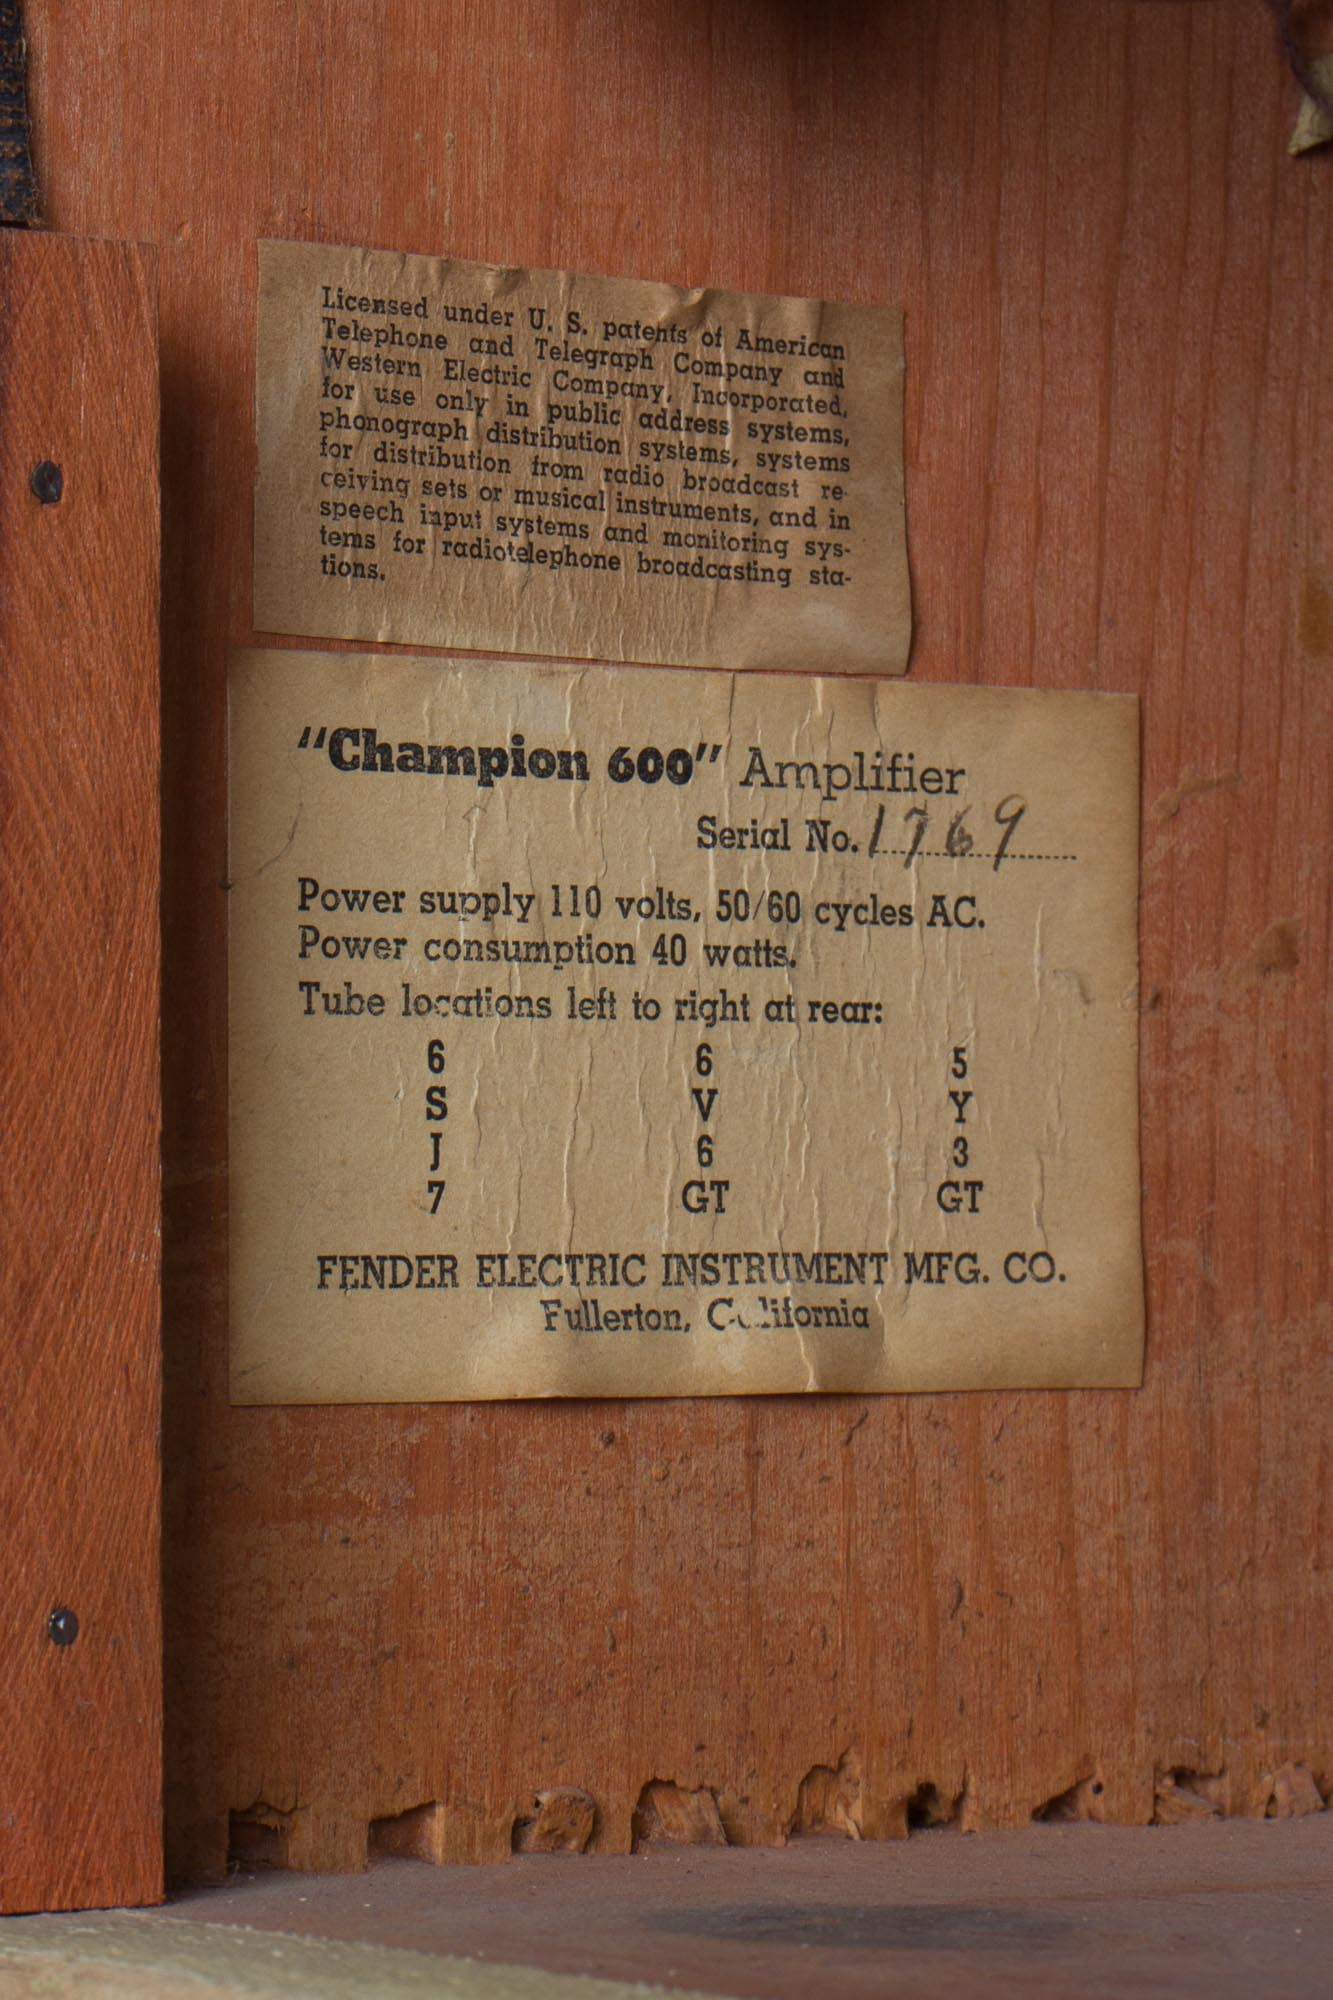 Licensed under U. S. patents of American
Telephone and Telegraph Company and
Western Electric Company, Incorporated,
for use only in public address systems,
phonograph distribution systems, systems
for distribution from radio broadcast re-
ceiving sets or musical instruments, and in
speech input systems and monitoring sys-
tems for radiotelephone broadcasting sta-
tions.
"Champion 600" Amplifier
Serial No. 1769
Power supply 110 volts, 50/60 cycles AC.
Power consumption 40 watts.
Tube locations left to right at rear:
6 6 5
S V Y
J 6 3
7 GT GT
FENDER ELECTRIC INSTRUMENT MFG. CO.
Fullerton, California